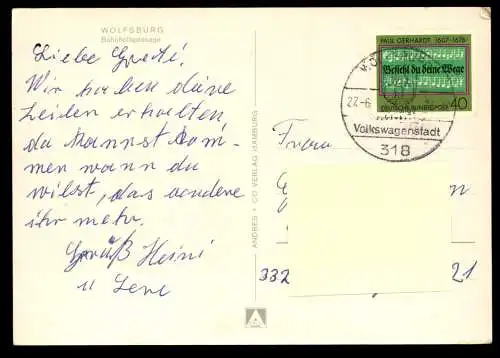 WOLFSBURG
Bahnhofspassage
Liebe Greti!
Wir haben deine
Zeilen erhalten,
du kannst kom-
men wann du
wilst, das andere
ihr mehr.
Gruß Heini
u Lene
ANDRES + CO VERLAG HAMBURG
PAUL GERHARDT 1607-1676
Befiehl du deine Wege
DEUTSCHE BUNDESPOST 40
27.-6
Volkswagenstadt
318
Frau
332
21